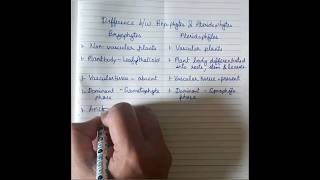 Difference b/w Bryophytes & Pteridophytes
Bryophytes Pteridophytes
1. Non vascular plants 1. Vascular plants
2. Plant body - leafy/thalloid 2. Plant body differentiated
into roots, stem & leaves
3. Vascular tissue - absent 3. Vascular tissue - present
4. Dominant - Gametophyte 4. Dominant - Sporophyte
phase phase
5.